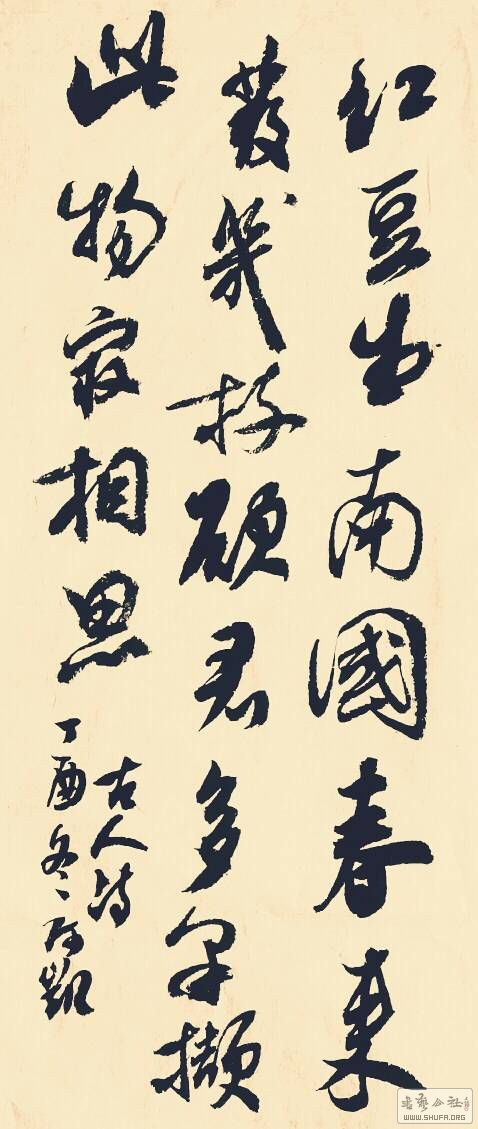 红豆生南國春来
發幾枝願君多采撷
此物最相思
古人诗
丁酉冬阿凱
書艺公社
WWW.SHUFA.ORG